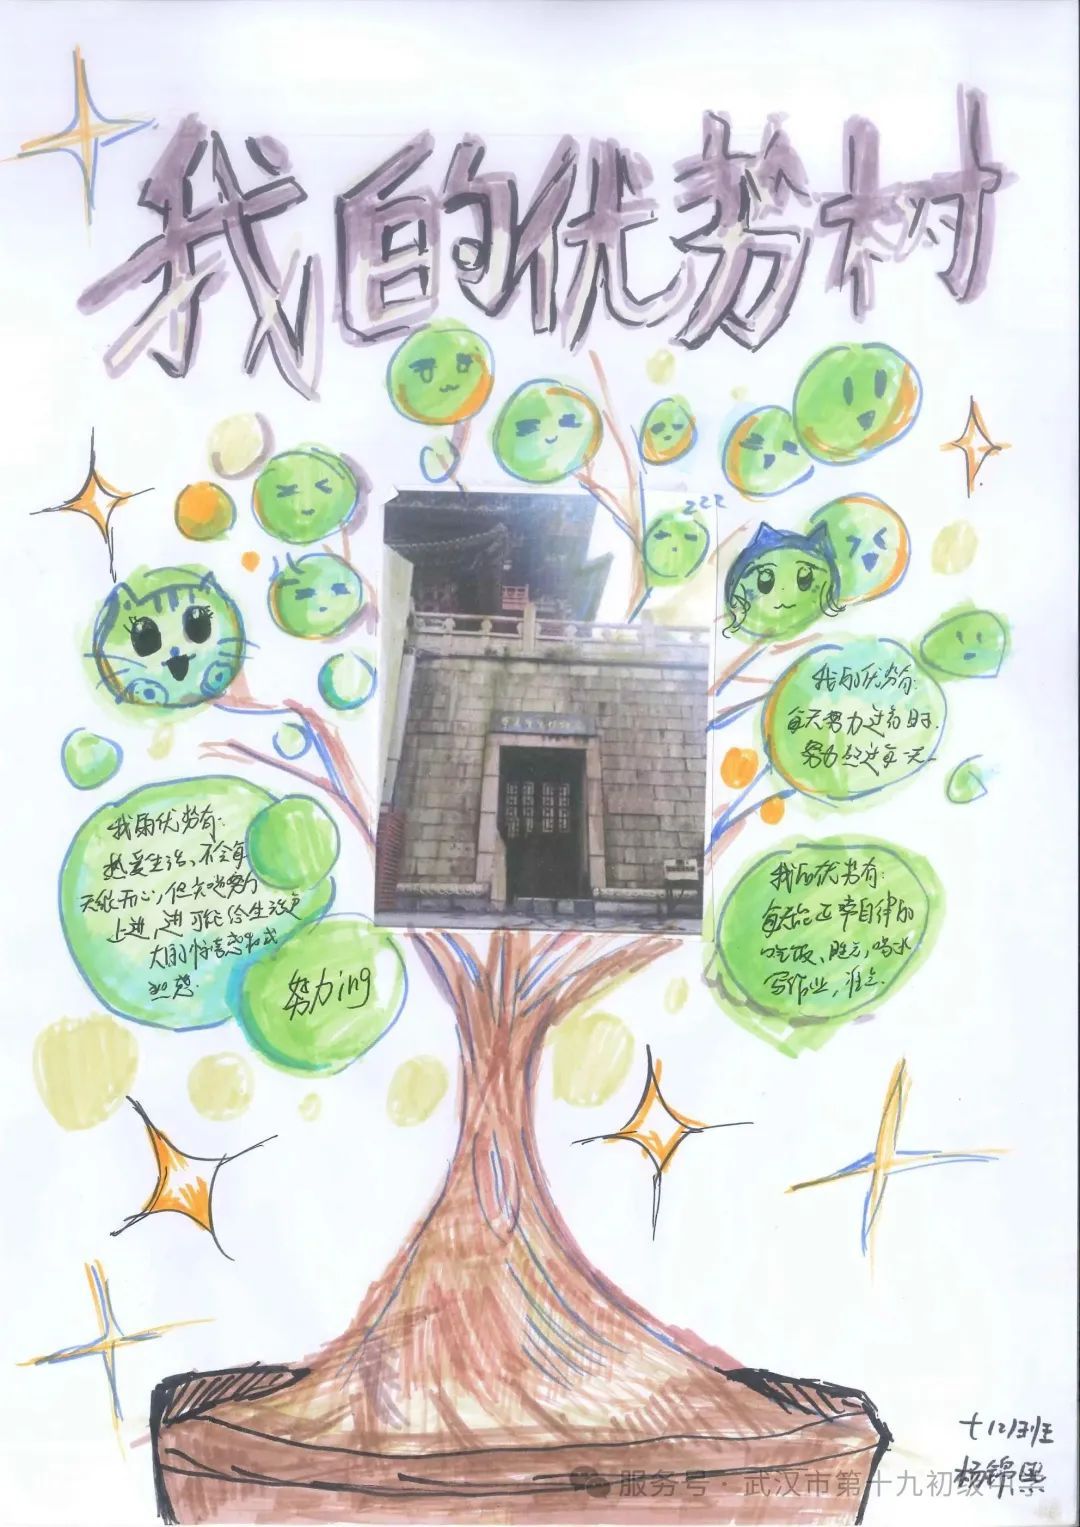 我的优势树
zzz
我的优势有:
每天努力过好每时.
努力过每一天~
我的优势有:
热爱生活、不会每
天都开心,但会努力
上进,进可能给生活更
大的
努力ing
我的优势有:
每天能正常自律的
吃饭、睡觉,喝水
写作业,准点.
杨锦
服务号 · 武汉市第十九初级中学